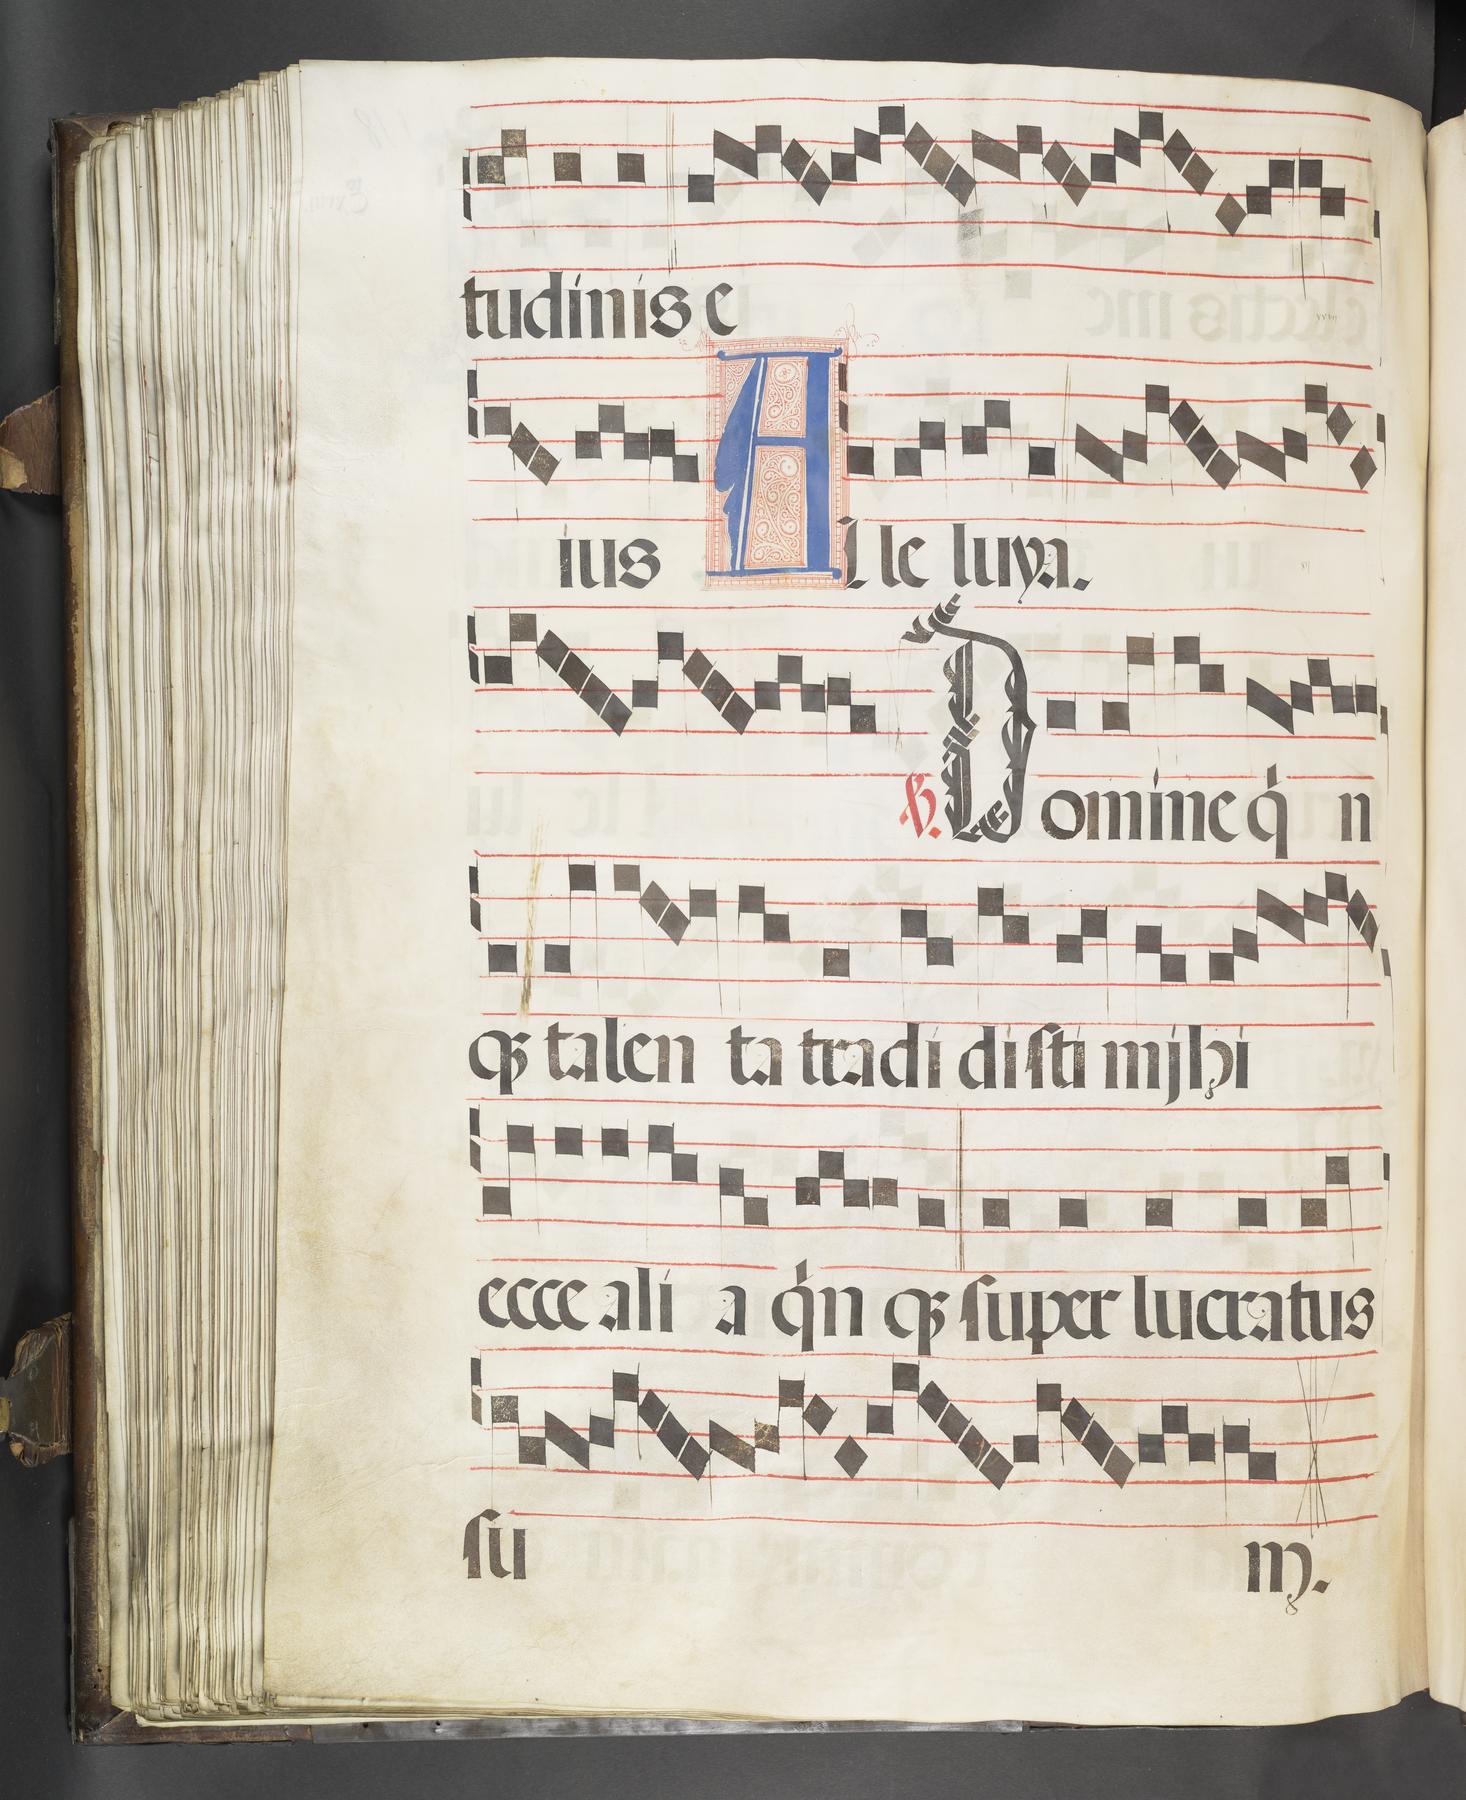 tudinis e
ius Alleluya.
℣. Domine q̇ n
qꝫ talen ta tradi disti mjhi
ecce ali a q̇n qꝫ super lucratus
su m.